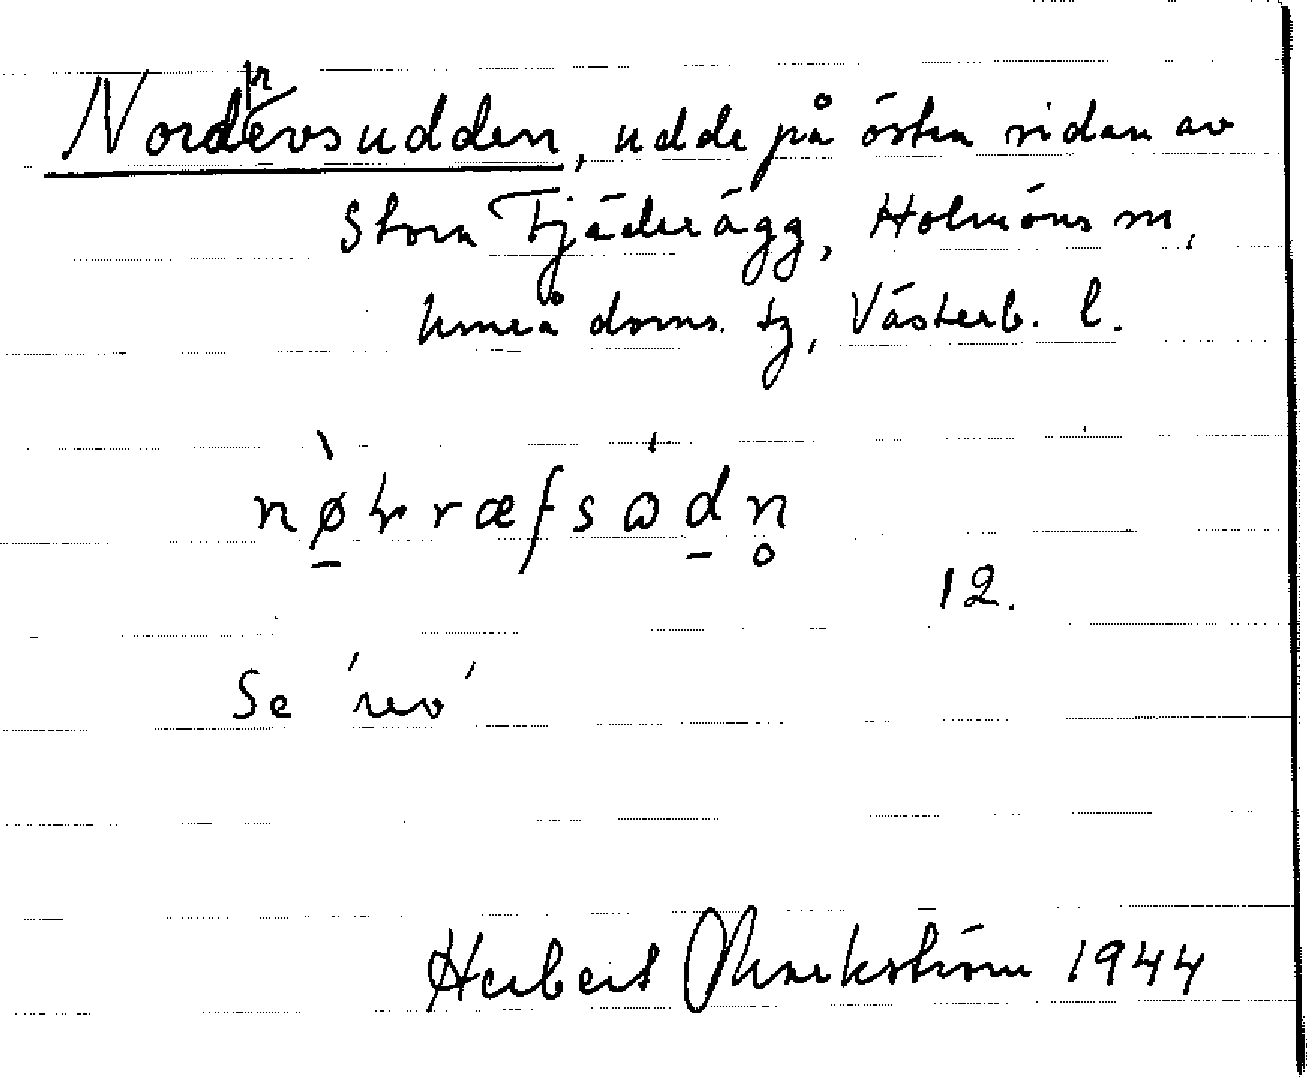 Nordrevsudden, udde på östra sidan av
Stora Fjäderägg, Holmöns sn,
Umeå doms. tg, Västerb. l.
nø̱ꝶræfsωḏn̥
12.
Se 'rev'
Herbert Markström 1944